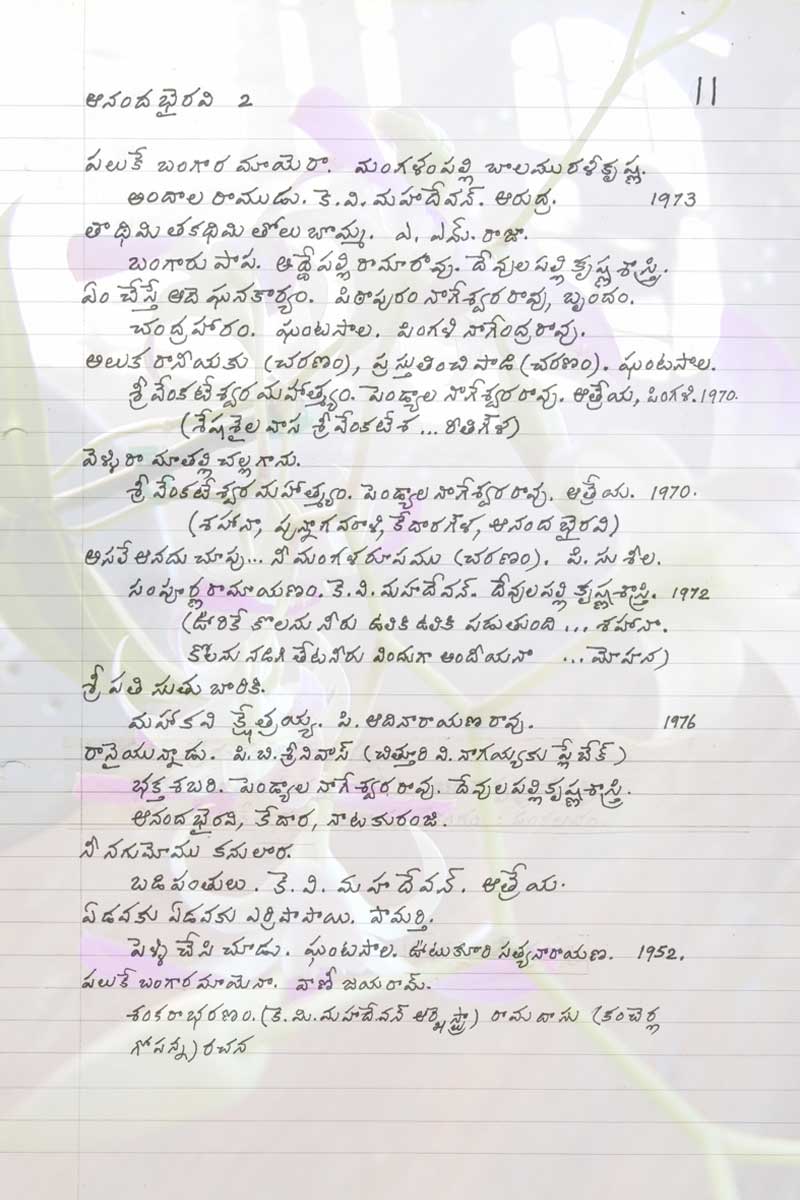 ఆనంద భైరవి 2
11
పలుకే బంగారమాయెరా. మంగళంపల్లి బాలమురళీకృష్ణ.
అందాల రాముడు. కె. వి. మహాదేవన్. ఆరుద్ర. 1973
తాధిమి తకధిమి తోలుబొమ్మ. ఎ. ఎమ్. రాజా.
బంగారు పాప. అద్దేపల్లి రామారావు. దేవులపల్లి కృష్ణశాస్త్రి.
ఏం చేస్తే అదె ఘనకార్యం. పిఠాపురం నాగేశ్వరరావు, బృందం.
చంద్రహారం. ఘంటసాల. పింగళి నాగేంద్రరావు.
అలుక రానీయకు (చరణం), ప్రస్తుతించి పాడి (చరణం). ఘంటసాల.
శ్రీ వేంకటేశ్వర మహాత్మ్యం. పెండ్యాల నాగేశ్వరరావు. ఆత్రేయ, పింగళి. 1970.
(శేషశైల వాస శ్రీ వేంకటేశ ... రీతిగౌళ)
పెళ్ళిరొ మాతల్లి చల్లగాను.
శ్రీ వేంకటేశ్వర మహాత్మ్యం. పెండ్యాల నాగేశ్వరరావు. ఆత్రేయ. 1970.
(శహానా, పున్నాగవరాళి, కేదారగౌళ, ఆనంద భైరవి)
అసలే ఆనదు చూపు... నీ మంగళరూపము (చరణం). పి. సుశీల.
సంపూర్ణ రామాయణం. కె. వి. మహాదేవన్. దేవులపల్లి కృష్ణశాస్త్రి. 1972
(ఊరికే కొలను నీరు ఉలికి ఉలికి పడుతుంది ... శహానా.
కొలను నడిగి తేటనీరు విందుగా అందీయనా ... మోహన)
శ్రీ పతి సుతు బారికి.
మహాకవి క్షేత్రయ్య. పి. ఆదినారాయణ రావు. 1976
రానైయున్నాడు. పి. బి. శ్రీనివాస్ (చిత్తూరి వి. నాగయ్యకు ప్లేబేక్)
భక్త శబరి. పెండ్యాల నాగేశ్వరరావు. దేవులపల్లి కృష్ణశాస్త్రి.
ఆనంద భైరవి, కేదార, నాటకురంజి.
నీ నగుమోము కనులార.
బడి పంతులు. కె. వి. మహాదేవన్. ఆత్రేయ.
ఏడవకు ఏడవకు ఎర్రిపాపాయి. పామర్తి.
పెళ్ళి చేసి చూడు. ఘంటసాల. ఊటుకూరి సత్యనారాయణ. 1952.
పలుకే బంగారమాయెనా. వాణీ జయరామ్.
శంకరాభరణం. (కె. వి. మహాదేవన్ ఆర్కెస్ట్రా) రామదాసు (కంచెర్ల
గోపన్న) రచన